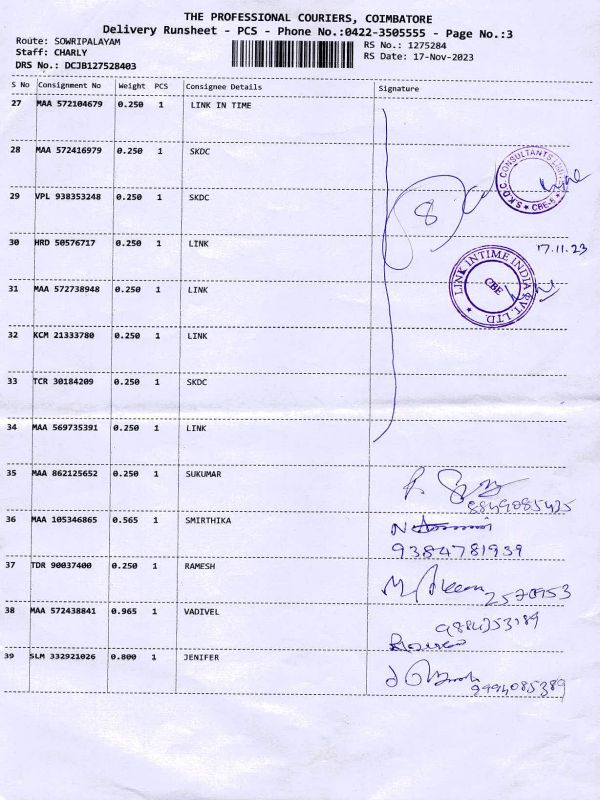 THE PROFESSIONAL COURIERS, COIMBATORE
Delivery Runsheet - PCS - Phone No.:0422-3505555 - Page No.:3
Route: SOWRIPALAYAM
Staff: CHARLY
DRS No.: DCJB127528403
RS No.: 1275284
RS Date: 17-Nov-2023
S No Consignment No Weight PCS Consignee Details Signature
27 MAA 572104679 0.250 1 LINK IN TIME
28 MAA 572416979 0.250 1 SKDC
S.K.D.C. CONSULTANTS LIMITED ★ CBE-6 ★
29 VPL 938353248 0.250 1 SKDC
8
30 HRD 50576717 0.250 1 LINK
17.11.23
LINK INTIME INDIA PVT. LTD. ★
CBE
31 MAA 572738948 0.250 1 LINK
32 KCM 21333780 0.250 1 LINK
33 TCR 30184209 0.250 1 SKDC
34 MAA 569735391 0.250 1 LINK
35 MAA 862125652 0.250 1 SUKUMAR
8849085425
36 MAA 105346865 0.565 1 SMIRTHIKA
9384781939
37 TDR 90037400 0.250 1 RAMESH
2570953
38 MAA 572438841 0.965 1 VADIVEL
39 SLM 332921026 0.800 1 JENIFER
9994085389